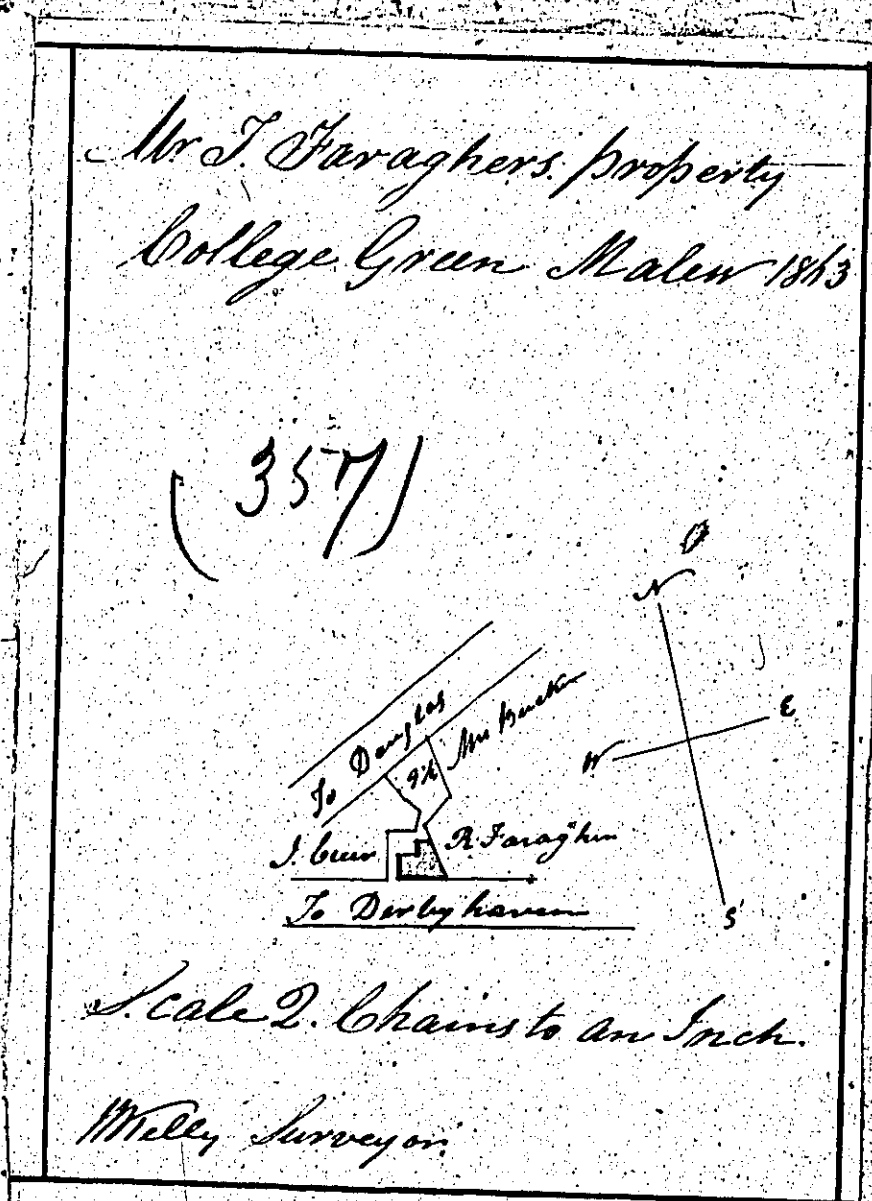 Mr T. Faraghers. property
College Green Malew 1863
(357)
N
E
W
S
To Douglas
Mrs
R. Faragher
To Derbyhaven
Scale 2. Chains to an Inch.
Surveyor.